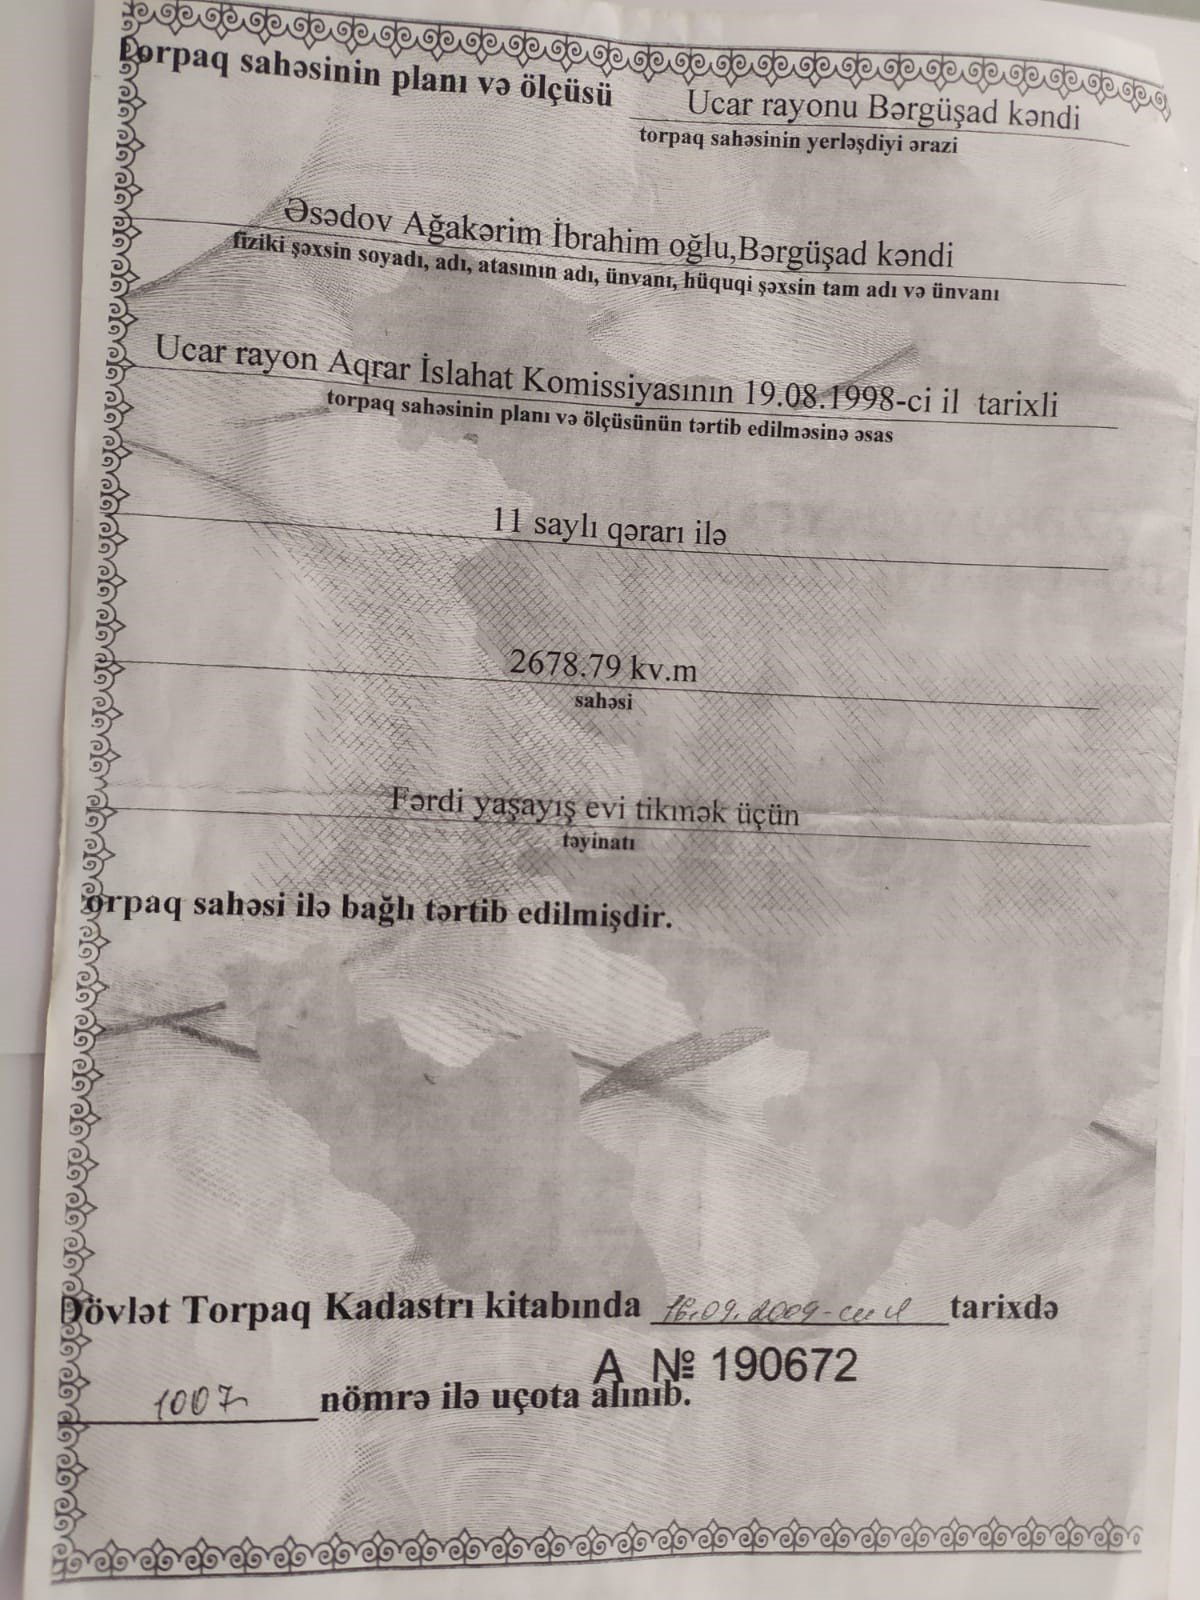 Torpaq sahəsinin planı və ölçüsü
Ucar rayonu Bərgüşad kəndi
torpaq sahəsinin yerləşdiyi ərazi
Əsədov Ağakərim İbrahim oğlu,Bərgüşad kəndi
fiziki şəxsin soyadı, adı, atasının adı, ünvanı, hüquqi şəxsin tam adı və ünvanı
Ucar rayon Aqrar İslahat Komissiyasının 19.08.1998-ci il tarixli
torpaq sahəsinin planı və ölçüsünün tərtib edilməsinə əsas
11 saylı qərarı ilə
2678.79 kv.m
sahəsi
Fərdi yaşayış evi tikmək üçün
təyinatı
torpaq sahəsi ilə bağlı tərtib edilmişdir.
Dövlət Torpaq Kadastrı kitabında 16.09.2009-cu il tarixdə
A № 190672
1007 nömrə ilə uçota alınıb.